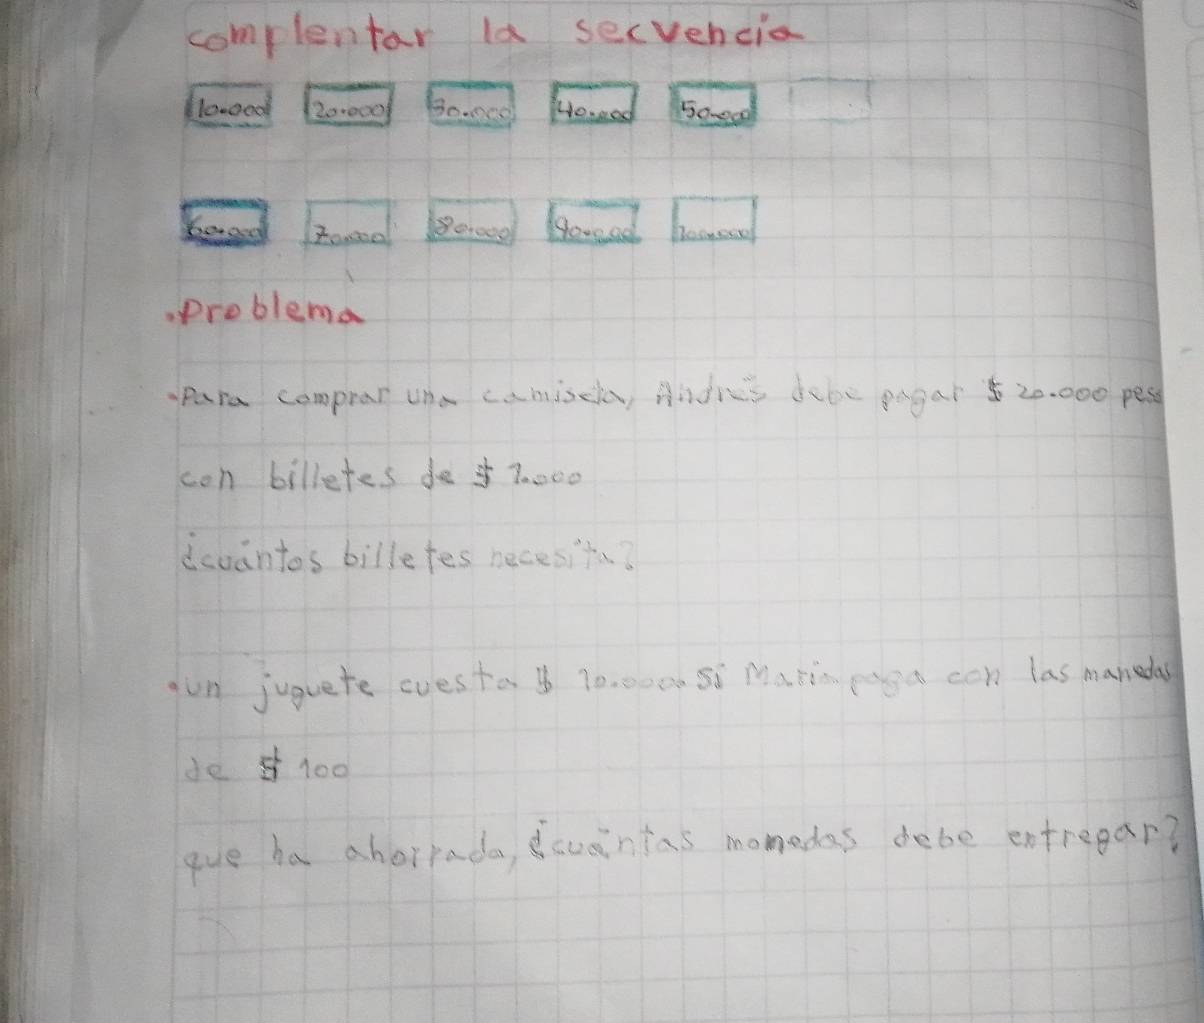 complentar la secuencia
10.000 20.000 30.000 40.000 50.000
60.000 70.000 80.000 90.000 100.000
.Problema
.Para comprar una camiseta, Andrés debe pagar $ 20.000 peso
con billetes de $ 1.000
¿cuántos billetes necesita?
.un juguete cuesta $ 10.000. si Maria paga con las manedas
de $ 100
que ha ahorrada, ¿cuántas monedas debe entregar?